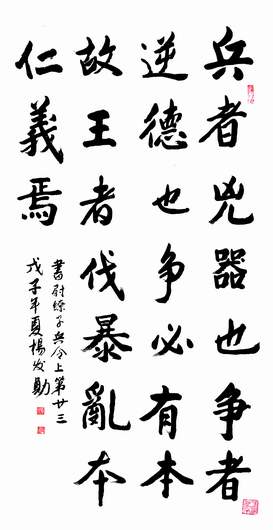 兵者兇器也争者
逆德也争必有本
故王者伐暴亂本
仁義焉
書尉繚子兵令上第廿三
戊子年夏楊发勛